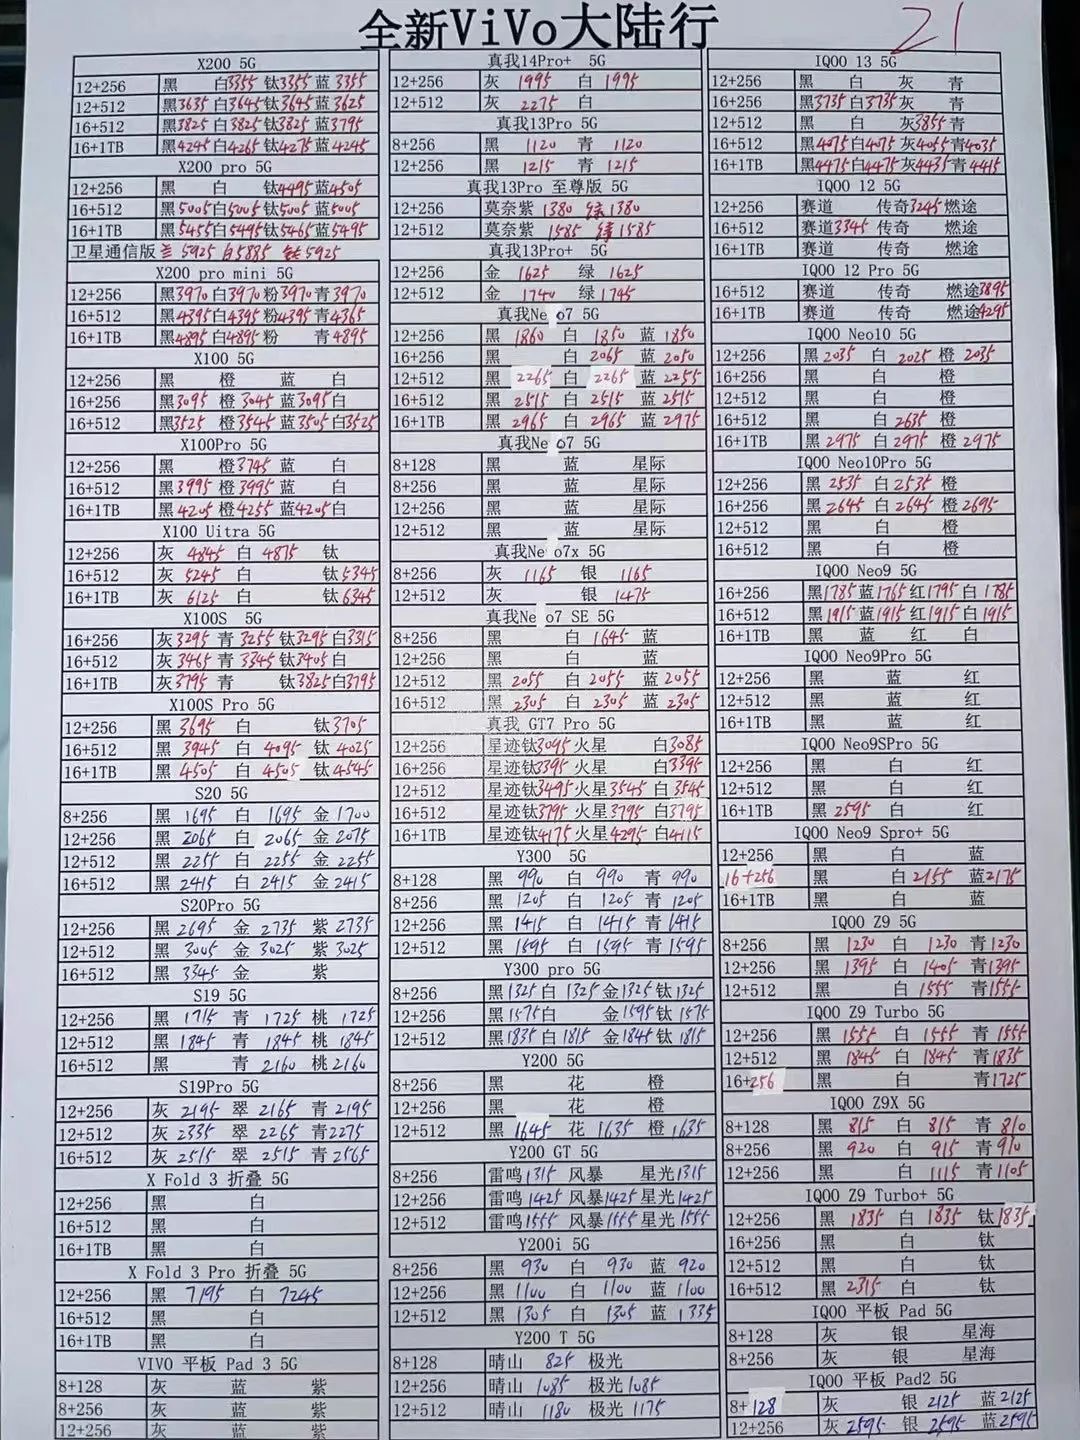 全新ViVo大陆行
21
X200 5G
12+256 黑 白3355 钛3355 蓝 3355
12+512 黑3635 白3645 钛3645 蓝3625
16+512 黑3825 白3825 钛3825 蓝3795
16+1TB 黑4245 白4265 钛4275 蓝4245
X200 pro 5G
12+256 黑 白 钛4495 蓝4505
16+512 黑5005 白5005 钛5005 蓝5005
16+1TB 黑5455 白5495 钛5465 蓝5495
卫星通信版 5925 白5885 钛5925
X200 pro mini 5G
12+256 黑3970 白3970 粉3970 青3970
16+512 黑4395 白4395 粉4395 青4365
16+1TB 黑4895 白4895 粉 青4895
X100 5G
12+256 黑 橙 蓝 白
16+256 黑3095 橙3045 蓝3095 白
16+512 黑3525 橙3545 蓝3505 白3525
X100Pro 5G
12+256 黑 橙3745 蓝 白
16+512 黑3995 橙3995 蓝 白
16+1TB 黑4205 橙4255 蓝4205 白
X100 Uitra 5G
12+256 灰 4845 白 4875 钛
16+512 灰 5245 白 钛5345
16+1TB 灰 6125 白 钛6345
X100S 5G
16+256 灰3295 青3255 钛3295 白3315
16+512 灰3465 青3345 钛3405 白
16+1TB 灰3795 青 钛3825 白3795
X100S Pro 5G
12+256 黑 3695 白 钛3705
16+512 黑 3945 白 4095 钛 4025
16+1TB 黑 4505 白 4505 钛4545
S20 5G
8+256 黑 1695 白 1695 金 1700
12+256 黑 2065 白 2065 金 2075
12+512 黑 2255 白 2255 金 2255
16+512 黑 2415 白 2415 金 2415
S20Pro 5G
12+256 黑 2695 金 2735 紫 2735
12+512 黑 3005 金 3025 紫 3025
16+512 黑 3345 金 紫
S19 5G
12+256 黑 1715 青 1725 桃 1725
12+512 黑 1845 青 1845 桃 1845
16+512 黑 青 2160 桃 2160
S19Pro 5G
12+256 灰 2195 翠 2165 青 2195
12+512 灰 2335 翠 2265 青2275
16+512 灰 2515 翠 2515 青 2565
X Fold 3 折叠 5G
12+256 黑 白
16+512 黑 白
16+1TB 黑 白
X Fold 3 Pro 折叠 5G
12+256 黑 7195 白 7245
16+512 黑 白
16+1TB 黑 白
VIVO 平板 Pad 3 5G
8+128 灰 蓝 紫
8+256 灰 蓝 紫
12+256 灰 蓝 紫
真我14Pro+ 5G
12+256 灰 1995 白 1995
12+512 灰 2275 白
真我13Pro 5G
8+256 黑 1120 青 1120
12+256 黑 1215 青 1215
真我13Pro 至尊版 5G
12+256 莫奈紫 1380 1380
12+512 莫奈紫 1585 1585
真我13Pro+ 5G
12+256 金 1625 绿 1625
12+512 金 1740 绿 1745
真我Ne o7 5G
12+256 黑 1860 白 1850 蓝 1850
16+256 黑 白 2065 蓝 2050
12+512 黑 2265 白 2265 蓝 2255
16+512 黑 2515 白 2515 蓝 2515
16+1TB 黑 2965 白 2965 蓝 2975
真我Ne o7 5G
8+128 黑 蓝 星际
8+256 黑 蓝 星际
12+256 黑 蓝 星际
12+512 黑 蓝 星际
真我Ne o7x 5G
8+256 灰 1165 银 1165
12+512 灰 银 1475
真我Ne o7 SE 5G
8+256 黑 白 1645 蓝
12+256 黑 白 蓝
12+512 黑 2055 白 2055 蓝 2055
16+512 黑 2305 白 2305 蓝 2305
真我 GT7 Pro 5G
12+256 星迹钛3095 火星 白3085
16+256 星迹钛3395 火星 白3395
12+512 星迹钛3495 火星3545 白3545
16+512 星迹钛3795 火星3795 白3795
16+1TB 星迹钛4175 火星4295 白4115
Y300 5G
8+128 黑 990 白 990 青 990
8+256 黑 1205 白 1205 青 1205
12+256 黑 1415 白 1415 青1415
12+512 黑 1595 白 1595 青1595
Y300 pro 5G
8+256 黑1325 白 1325 金1325 钛1325
12+256 黑1575 白 金1595 钛1575
12+512 黑1835 白1815 金1845 钛1815
Y200 5G
8+256 黑 花 橙
12+256 黑 花 橙
12+512 黑 1645 花 1635 橙 1635
Y200 GT 5G
8+256 雷鸣1315 风暴 星光1315
12+256 雷鸣1425 风暴1425 星光1425
12+512 雷鸣1555 风暴1555 星光1555
Y200i 5G
8+256 黑 930 白 930 蓝 920
12+256 黑 1100 白 1100 蓝 1100
12+512 黑 1305 白 1305 蓝 1335
Y200 T 5G
8+128 晴山 825 极光
12+256 晴山 1085 极光1085
12+512 晴山 1180 极光 1175
IQOO 13 5G
12+256 黑 白 灰 青
16+256 黑3735 白3735 灰 青
12+512 黑 白 灰3855 青
16+512 黑4075 白4075 灰4055 青4035
16+1TB 黑4475 白4475 灰4435 青4415
IQOO 12 5G
12+256 赛道 传奇3245 燃途
16+512 赛道3345 传奇 燃途
16+1TB 赛道 传奇 燃途
IQOO 12 Pro 5G
16+512 赛道 传奇 燃途3895
16+1TB 赛道 传奇 燃途4295
IQOO Neo10 5G
12+256 黑 2035 白 2025 橙 2035
16+256 黑 白 橙
12+512 黑 白 橙
16+512 黑 白 2635 橙
16+1TB 黑 2975 白 2975 橙 2975
IQOO Neo10Pro 5G
12+256 黑 2535 白 2535 橙
16+256 黑 2645 白 2645 橙2695
12+512 黑 白 橙
16+512 黑 白 橙
IQOO Neo9 5G
16+256 黑1785 蓝1765 红1795 白 1785
16+512 黑1915 蓝1915 红1915 白1915
16+1TB 黑 蓝 红 白
IQOO Neo9Pro 5G
12+256 黑 蓝 红
12+512 黑 蓝 红
16+1TB 黑 蓝 红
IQOO Neo9SPro 5G
12+256 黑 白 红
12+512 黑 白 红
16+1TB 黑 2595 白 红
IQOO Neo9 Spro+ 5G
12+256 黑 白 蓝
16+256 黑 白2155 蓝2175
16+1TB 黑 白 蓝
IQOO Z9 5G
8+256 黑 1230 白 1230 青1230
12+256 黑 1395 白 1405 青1395
12+512 黑 白 1555 青1555
IQOO Z9 Turbo 5G
12+256 黑 1555 白 1555 青 1555
12+512 黑 1845 白 1845 青1835
16+256 黑 白 青1725
IQOO Z9X 5G
8+128 黑 815 白 815 青 810
8+256 黑 920 白 915 青 910
12+256 黑 白 1115 青1105
IQOO Z9 Turbo+ 5G
12+256 黑 1835 白 1835 钛1835
16+256 黑 白 钛
12+512 黑 白 钛
16+512 黑 2315 白 钛
IQOO 平板 Pad 5G
8+128 灰 银 星海
8+256 灰 银 星海
IQOO 平板 Pad2 5G
8+128 灰 银 2125 蓝2125
12+256 灰 2595 银 2595 蓝2595